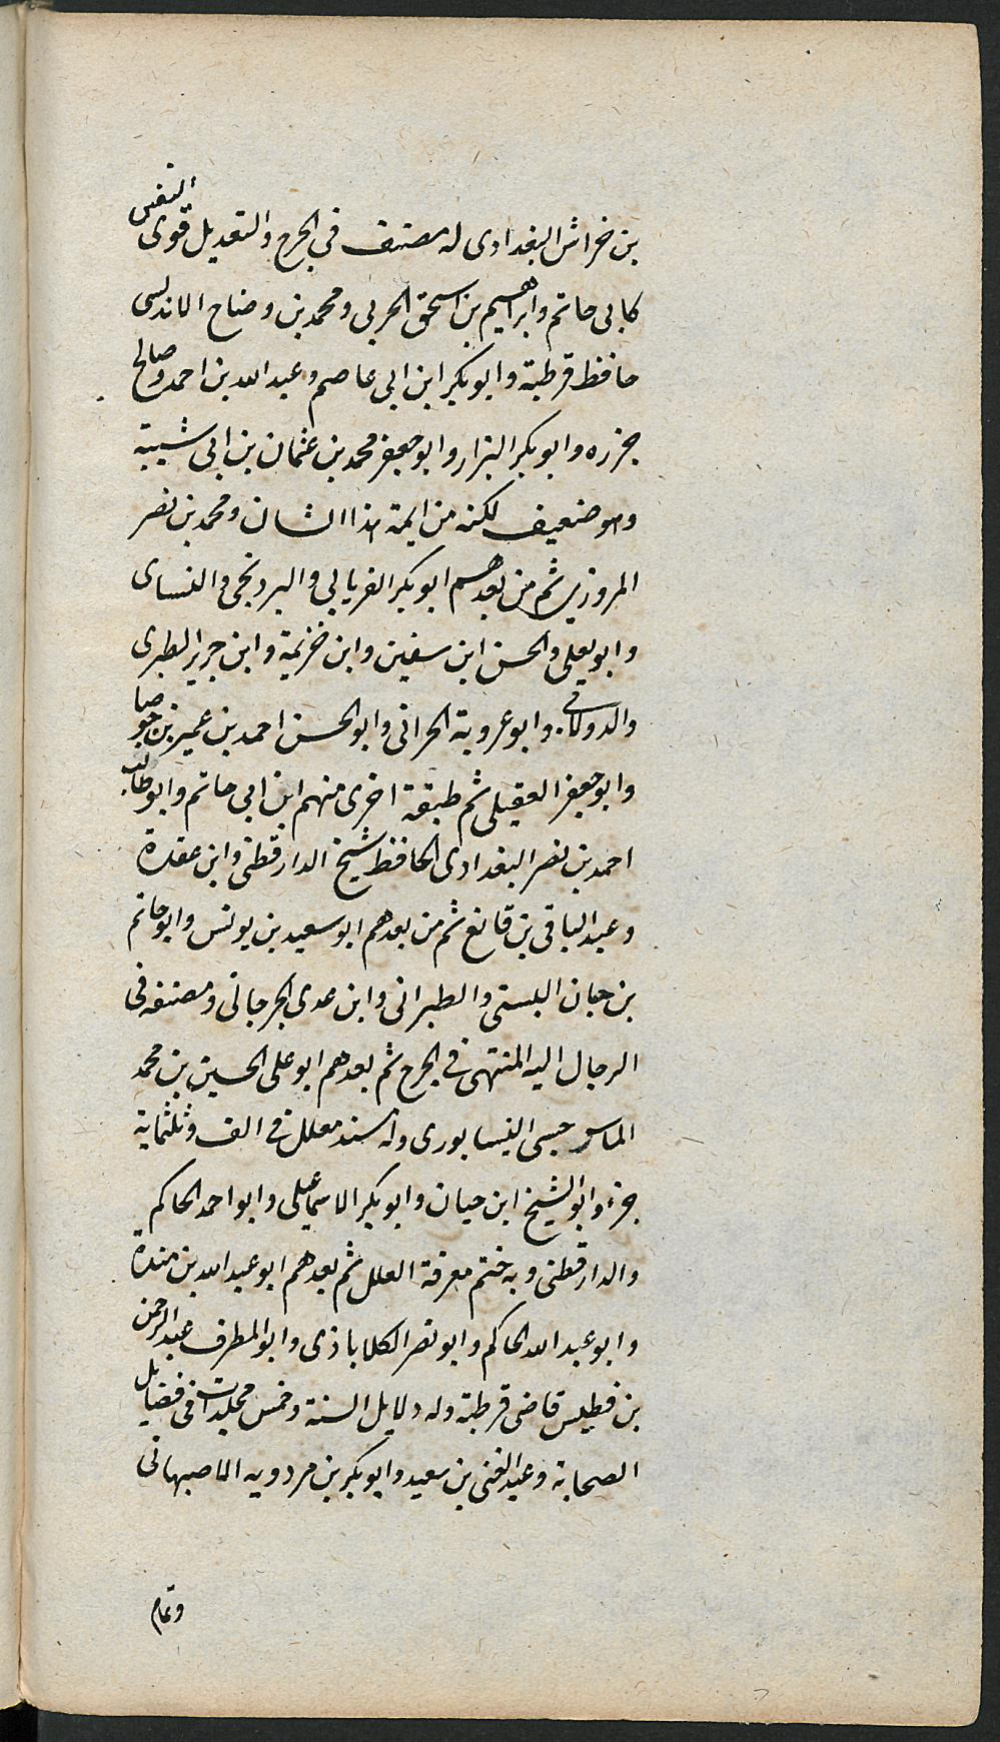 بن خراش البغدادى له مصنف فى الجرح والتعديل قوى النفس
كابى حاتم وابراهيم بن اسحق الحربى ومحمد بن وضاح الاندلسى
حافظ قرطبة وابو بكر ابن ابى عاصم وعبد الله بن احمد وصالح
جزره وابو بكر البزار وابو جعفر محمد بن عثمان بن ابى شيبة
وهو ضعيف لكنه من ايمة هذا الشان ومحمد بن نصر
المروزى ثم من بعدهم ابو بكر الفريابى والبرديجى والنساى
وابو يعلى والحسن ابن سفين وابن خزيمة وابن جرير الطبرى
والدولابى وابو عروبة الحرانى وابو الحسن احمد بن عمير بن جوصا
وابو جعفر العقيلى ثم طبقة اخرى منهم ابن ابى حاتم وابو طالب
احمد بن نصر البغدادى الحافظ شيخ الدارقطنى وابن عقدة
وعبد الباقى بن قانع ثم من بعدهم ابو سعيد بن يونس وابو حاتم
بن حبان البستى والطبرانى وابن عدى الجرجانى ومصنفه فى
الرجال اليه المنتهى فى الجرح ثم بعدهم ابو على الحسين بن محمد
الماسرجسى النيسابورى وله مسند معلل فى الف وثلثماية
جزء وابو الشيخ ابن حيان وابو بكر الاسماعيلى وابو احمد الحاكم
والدارقطنى وبه ختم معرفة العلل ثم بعدهم ابو عبد الله بن مندة
وابو عبد الله الحاكم وابو نصر الكلاباذى وابو المطرف عبد الرحمن
بن فطيس قاضى قرطبة وله دلايل السنة وخمس مجلدات فى فضايل
الصحابة وعبد الغنى بن سعيد وابو بكر بن مردويه الاصبهانى
وتمام